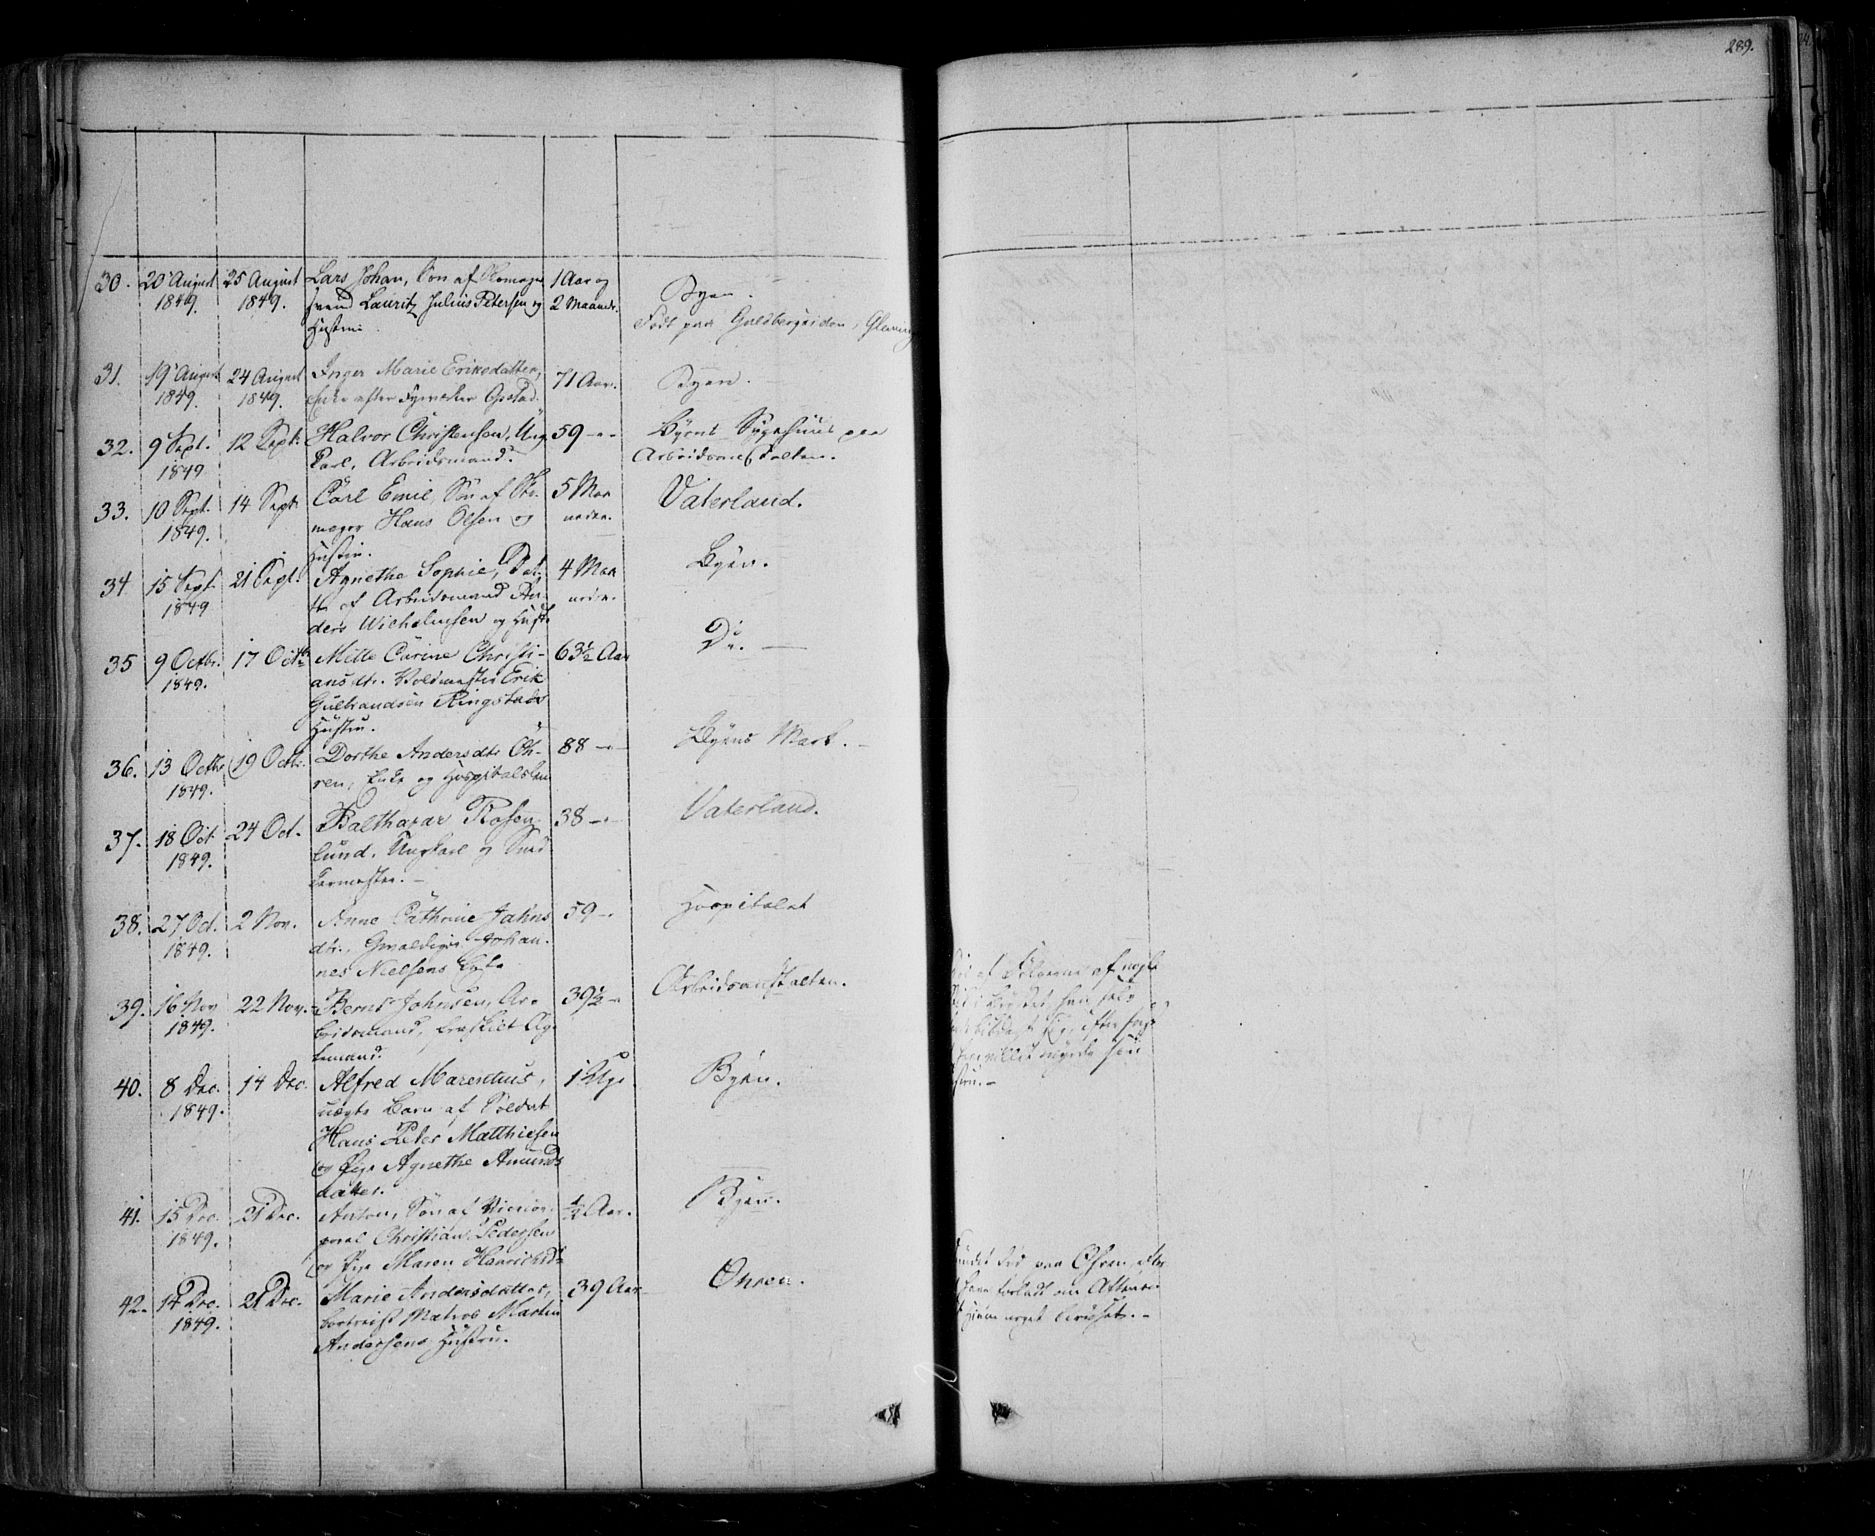 289.
30. 20 August 1849. 25 August 1849. Lars Johan, Søn af Skomager
svend Lauritz Julius Petersen og
Hustru.
1 Aar og
2 Maaneder.
Byen.
Født paa
31. 19 August 1849. 24 August 1849. Inger Marie Eriksdatter,
Enke efter
71 Aar.
Byen.
32. 9 Sept. 1849 12 Sept. Halvor Christensen, Ung
karl, Arbeidsmand.
59 -"-
Byens Sygehuus paa
Arbeidsanstalten.
33. 10 Sept. 1849. 14 Sept. Carl Emil, Søn af Sko-
mager Hans Olsen og
Hustru.
5 Maa
neder.
Vaterland.
34 15 Sept. 1849 21 Sept. Agnethe Sophie, Dat-
ter af Arbeidsmand An-
ders Wilhelmsen og Hustr.
4 Maa
neder.
Byen.
35 9 Octbr. 1849. 17 Octbr. Mille Carine Christi-
ansdtr. Voldmester Erik
Gulbrandsen Ringstads
Hustru.
63½ Aar
Do. —
36. 13 Octbr 1849. 19 Octbr. Dorthe Andersdtr Øh-
ren, Enke og Hospitalslem
88 -"-
Byens Mark. -
37. 18 Oct 1849. 24 Oct. Balthazar Rosen-
lund, Ungkarl og Sned
kermester. -
38 -"-
Vaterland.
38. 27 Oct. 1849. 2 Nov. Anne Cathrine Jahns
dtr., Gevaldiger Johan-
nes Nielsens Enke
59 -"
Hospitalet
39. 16 Nov 1849. 22 Nov. Bernt Johnsen, Ar-
beidsmand, fraskilt Æg-
temand.
39½ -"
Arbeidsanstalten.
af Følgerne af
40. 8 Dec. 1849. 14 Dec. Alfred Marentius,
uægte Barn af Soldat
Hans Peter Matthiesen
og Pige Agnethe Amunds
datter.
1 Uge
Byen.
41. 15 Dec. 1849. 21 Dec. Anton, Søn af Vicecor-
poral Christian Pedersen
og Pige Maren
¼ Aar.
Byen.
42. 14 Dec. 1849. 21 Dec. Marie Andersdatter,
bortreist Matros Martin
Andersens Hustru.
39 Aar
Øhren.
død paa Øhren,
noget beruset. -